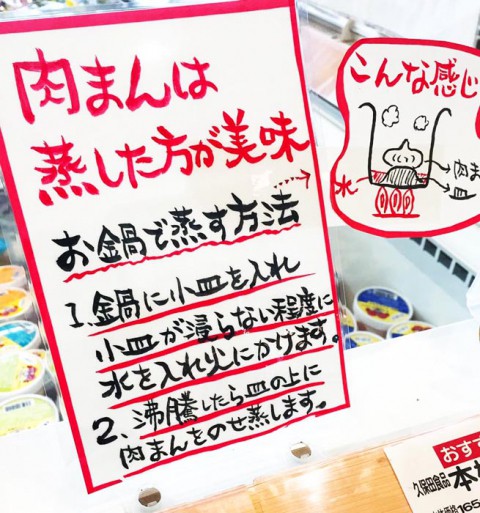 肉まんは
蒸した方が美味
お鍋で蒸す方法
1.鍋に小皿を入れ
小皿が浸らない程度に
水を入れ火にかけます。
2、沸騰したら皿の上に
肉まんをのせ蒸します。
こんな感じ
水
肉ま
皿
おす
久保田食品
本
165